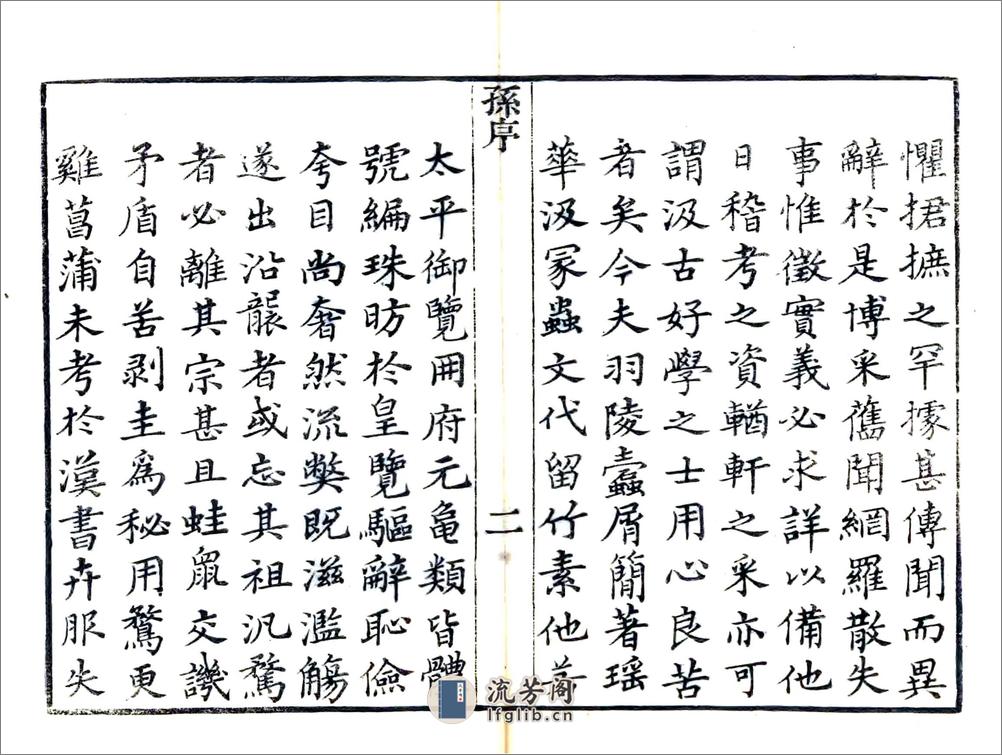 懼捃摭之罕據甚傳聞而異
辭於是博采舊聞網羅散失
事惟徵實義必求詳以備他
日稽考之資輶軒之采亦可
謂汲古好學之士用心良苦
者矣今夫羽陵蠹屑簡著瑶
華汲冢蟲文代留竹素他若
孫序
二
太平御覽冊府元龜類皆體
號編珠昉於皇覽驅辭恥儉
夸目尚奢然流獘既滋濫觴
遂出沿襲者或忘其祖汎騖
者必離其宗甚且蛙鼠交譏
矛盾自苦剥圭爲秘用騖更
雞菖蒲未考於漢書卉服失
流芳阁
lfglib.cn